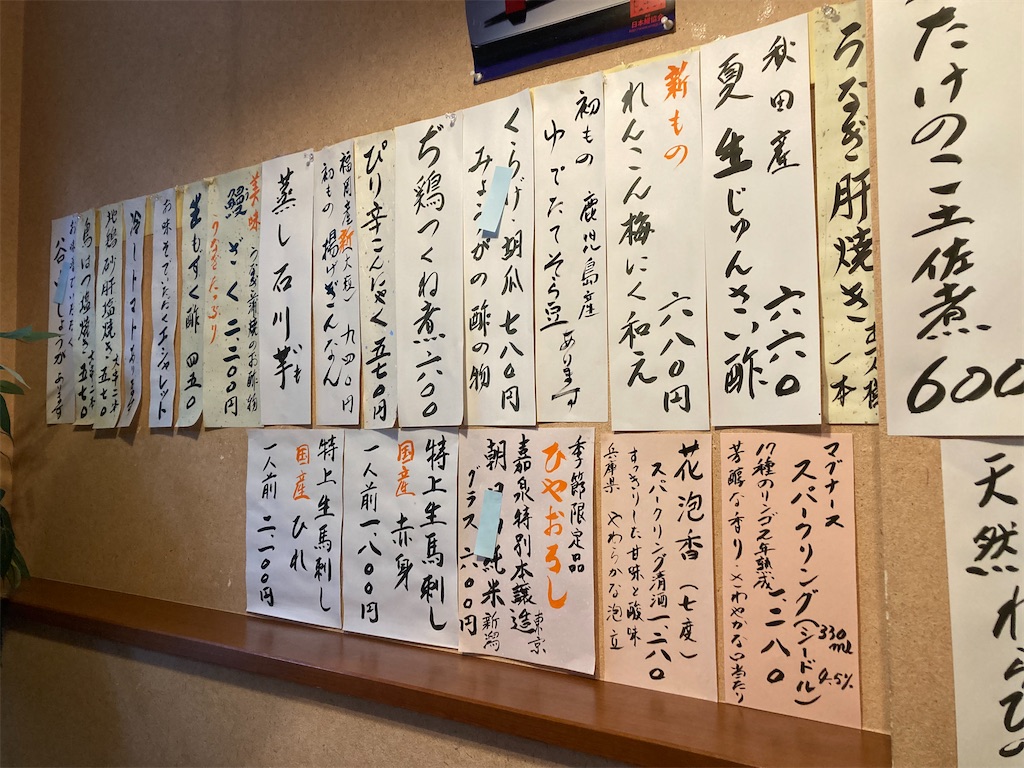 日本鰻協
たけのこ土佐煮 600
うなぎ肝焼き 一本
秋田産
夏 生じゅんさい酢 六六〇
新もの
れんこん梅にく和え 六八〇円
初もの 鹿児島産
ゆでたてそら豆あります
くらげ・胡瓜 七八〇円
みょうがの酢の物
ぢ鶏つくね煮 六八〇
ぴり辛こんにゃく 五七〇円
福岡産 新 (大粒) 九四〇円
初もの 揚げぎんなん
蒸し石川芋
美味 うなぎ蒲焼のお酢物
鰻ざく 二、二〇〇円
うなぎたっぷり
生もずく酢 四五〇
お味そでいただく エシャレット
冷しトマトあります
地鶏 砂肝塩焼き 五七〇
鳥はつ塩焼き 五七〇
お味噌でいただく
谷 しょうがあります
天然わらび
マグナース
スパークリング(シードル) 330ml 4.5%
17種のリンゴ 2年熟成 一、二八〇
芳醇な香り・さわやかな口当たり
花泡香 (七度)
スパークリング清酒 一、二八〇
すっきりした甘味と酸味
兵庫県 やわらかな泡立
季節限定品
ひやおろし
嘉泉特別本醸造 東京
朝 純米 新潟
グラス 六〇〇円
特上生馬刺し
国産 赤身
一人前 一、八〇〇円
特上生馬刺し
国産 ひれ
一人前 二、一〇〇円